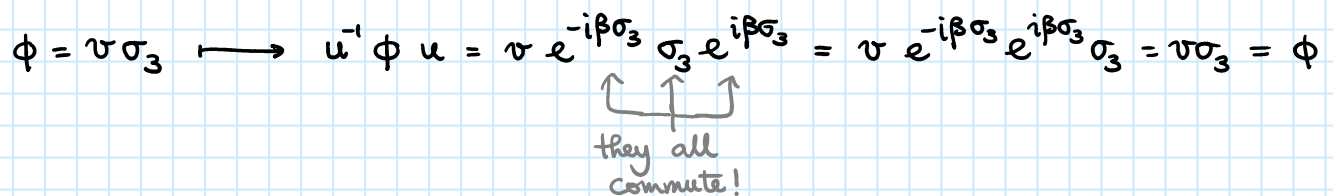 ϕ = vσ₃ ⟼ u⁻¹ ϕ u = v e^{-iβσ₃} σ₃ e^{iβσ₃} = v e^{-iβσ₃} e^{iβσ₃} σ₃ = vσ₃ = ϕ
they all
commute!